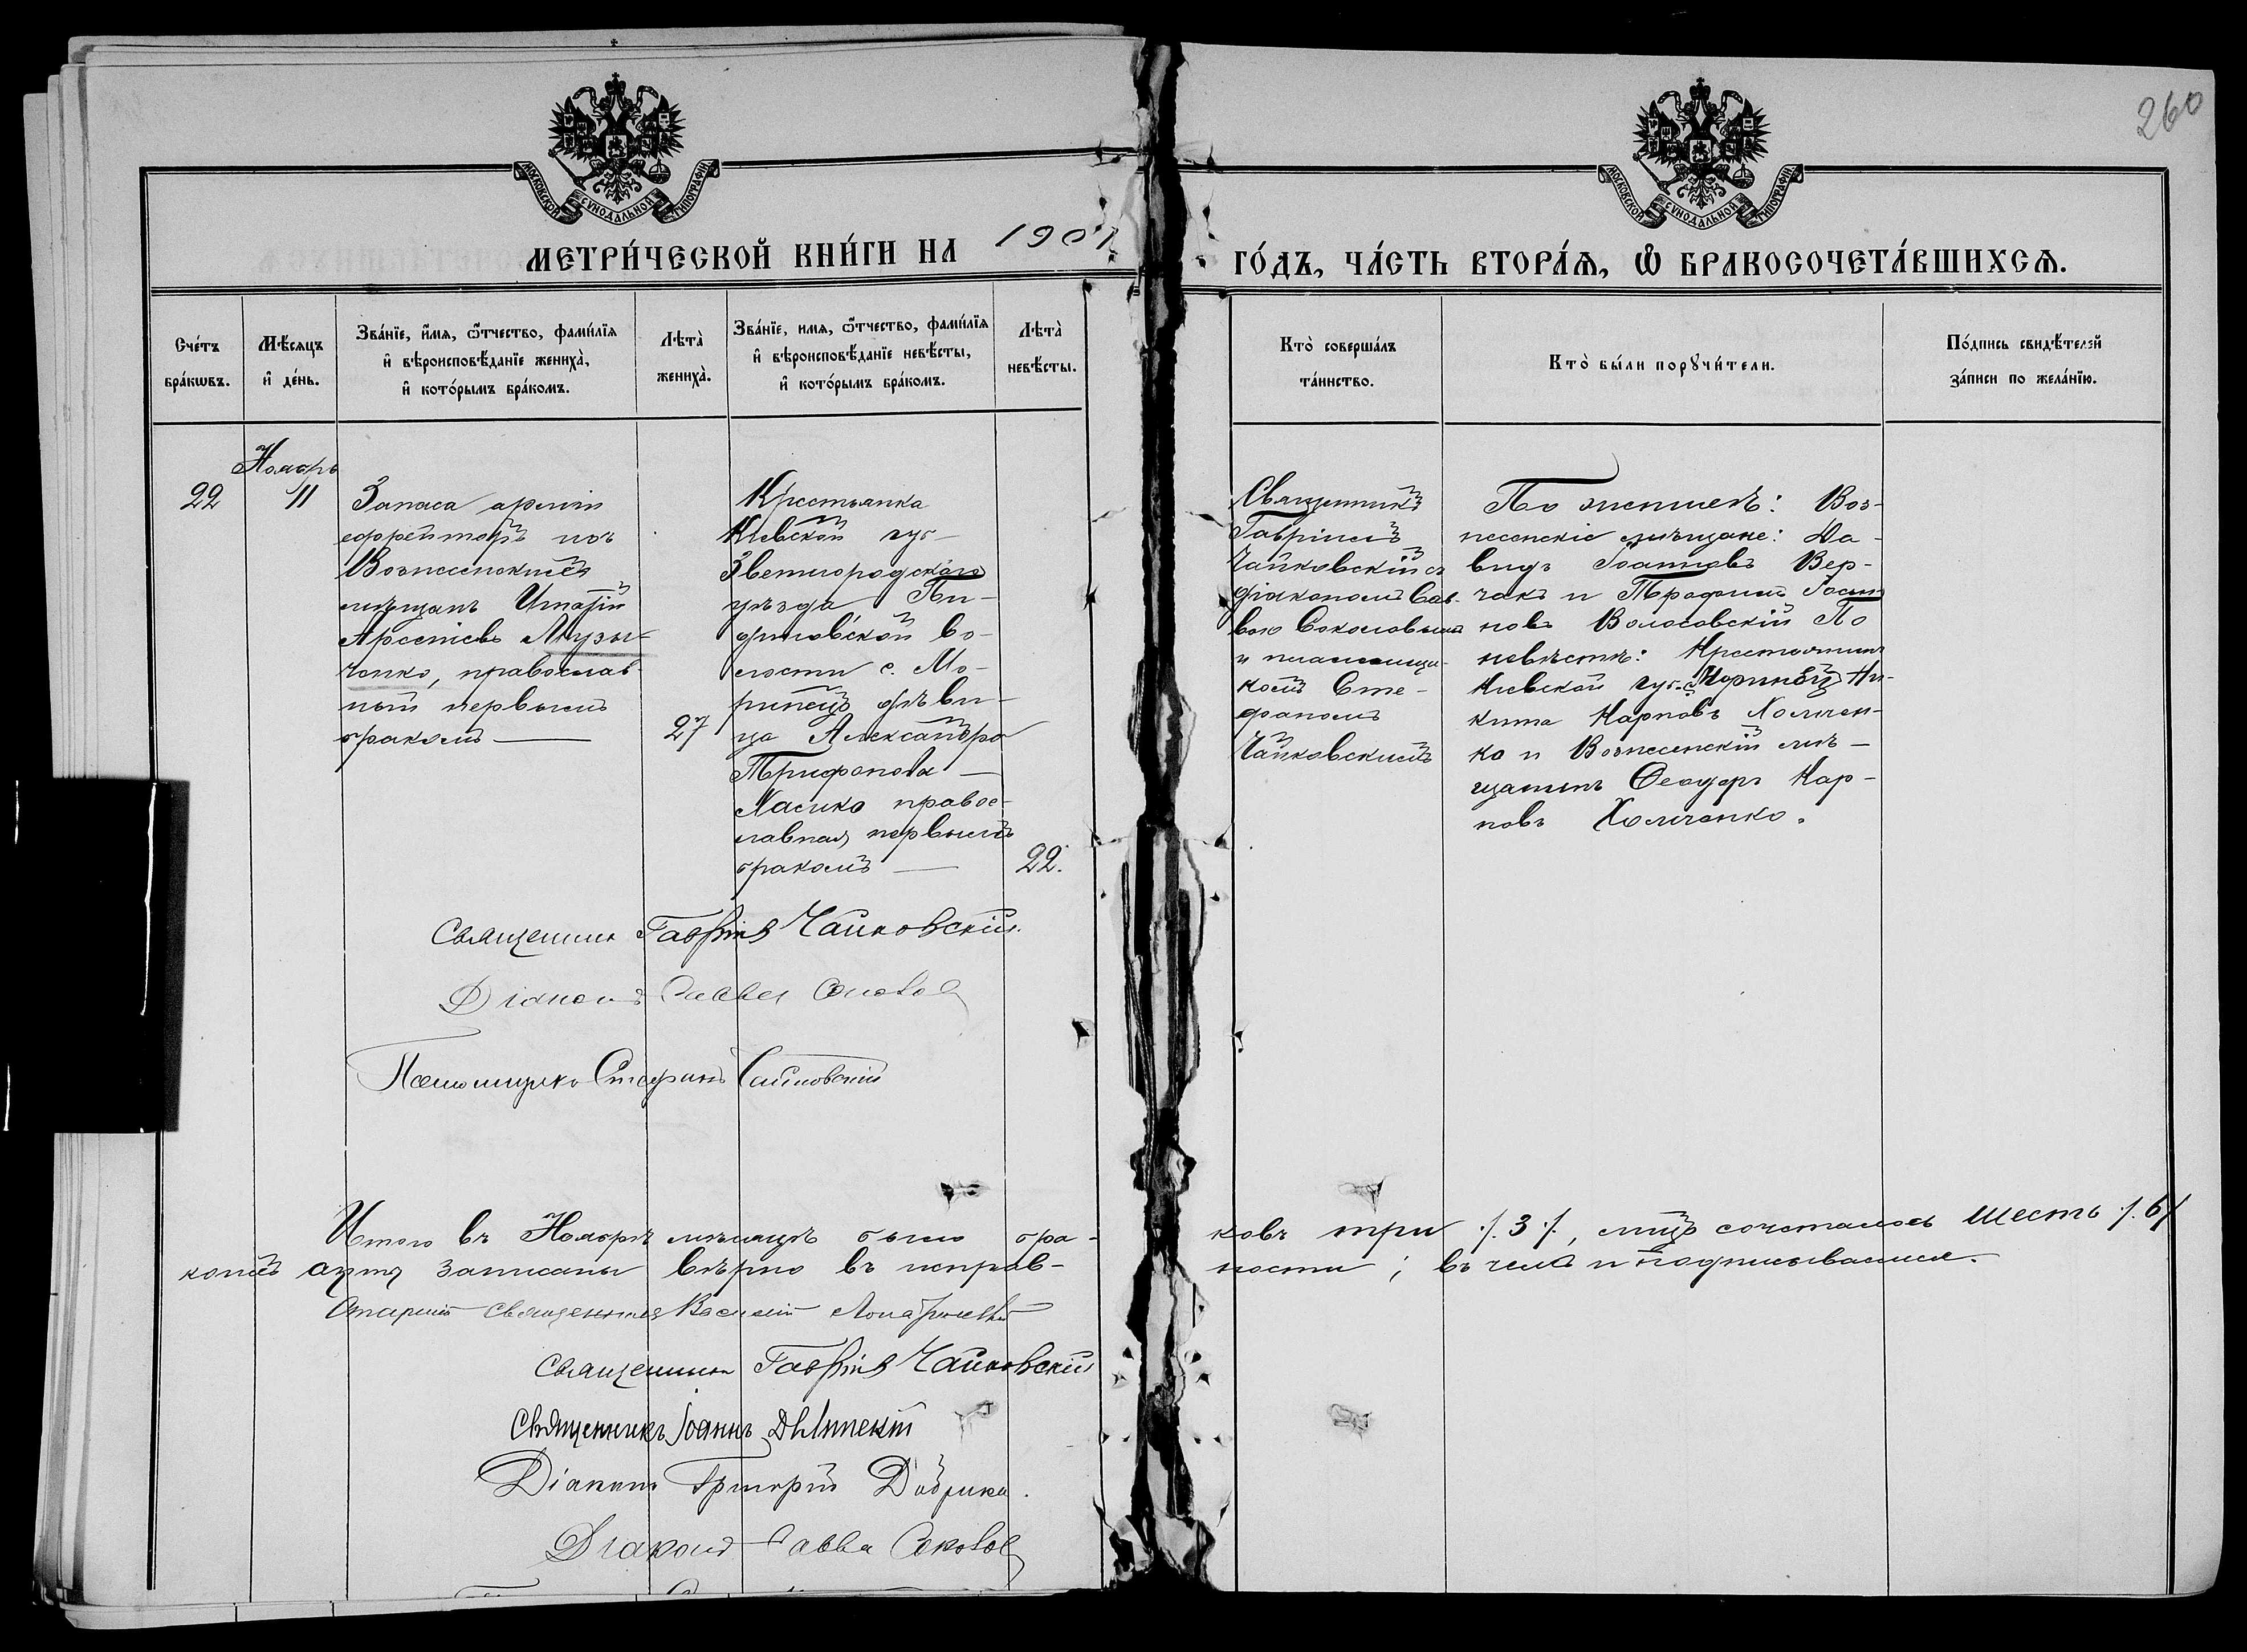 260
МОСКОВСКОЙ СѴНОДАЛЬНОЙ ТИПОГРАФІИ
МОСКОВСКОЙ СѴНОДАЛЬНОЙ ТИПОГРАФІИ
МЕТРИ́ЧЕСКОЙ КНИ́ГИ НА 1901
ГО́ДЪ, ЧА́СТЬ ВТОРА́Ѧ, Ѡ БРАКОСОЧЕТА́ВШИХСѦ.
Сче́тъ
бра́кѡвъ.
Мѣ́сяцъ
и҆ де́нь.
Зва́нїе, и҆́мя, ѻ҆́тчество, фами́лїя
и҆ вѣроисповѣ́данїе жениха̀,
и҆ кото́рымъ бра́комъ.
Лѣта̀
жениха̀.
Зва́нїе, имя, ѻ҆́тчество, фами́лїя
и҆ вѣроисповѣ́данїе невѣ́сты,
и҆ кото́рымъ бра́комъ.
Лѣта̀
невѣ́сты.
Кто̀ соверша́лъ
та́инство.
Кто̀ бы́ли порꙋчи́тели.
По́дпись свидѣ́телей
за́писи по жела́нїю.
Ноябрь
22
11
Запаса арміи
ефрейторъ изъ
Вознесенскихъ
мѣщанъ Игнатій
Арсеніевъ Музы-
ченко, православ-
ный первымъ
бракомъ
27
Крестьянка
Кіевской губ-
Звенигородскаго
уѣзда Пи-
диновской во-
лости с. Мо-
ринецъ дѣви-
ца Александра
Трифонова
Ласико правос-
лавная, первымъ
бракомъ
22.
Священникъ
Гавріилъ
Чайковскій съ
діакономъ Сав-
вою Соколовымъ
и псаломщи-
комъ Сте-
фаномъ
Чайковскимъ
По женихѣ: Воз-
несенскіе мѣщане: Да-
видъ Іоанновъ Вер-
чакъ и Трофимъ Іоси-
повъ Волосовскій По
невѣстѣ: Крестьянинъ
Кіевской губ. с. Моринецъ Ни-
кита Карповъ Холчен-
ко и Вознесенскій мѣ-
щанинъ Ѳеодоръ Кар-
повъ Холченко.
Священникъ Гавріилъ Чайковскій.
Діаконъ Савва Соколов
Псаломщикъ Стефанъ Чайковскій
Итого въ Ноябрѣ мѣсяцѣ было бра-
ковъ три ./. 3 ./., лицъ сочеталось шесть ./. 6 ./.
актъ записаны вѣрно въ исправ-
ности; въ чемъ и подписываемся.
Старшій священникъ Василій
Священникъ Гавріилъ Чайковскій
Священникъ Іоаннъ
Діаконъ Григорій
Діаконъ Савва Соколов